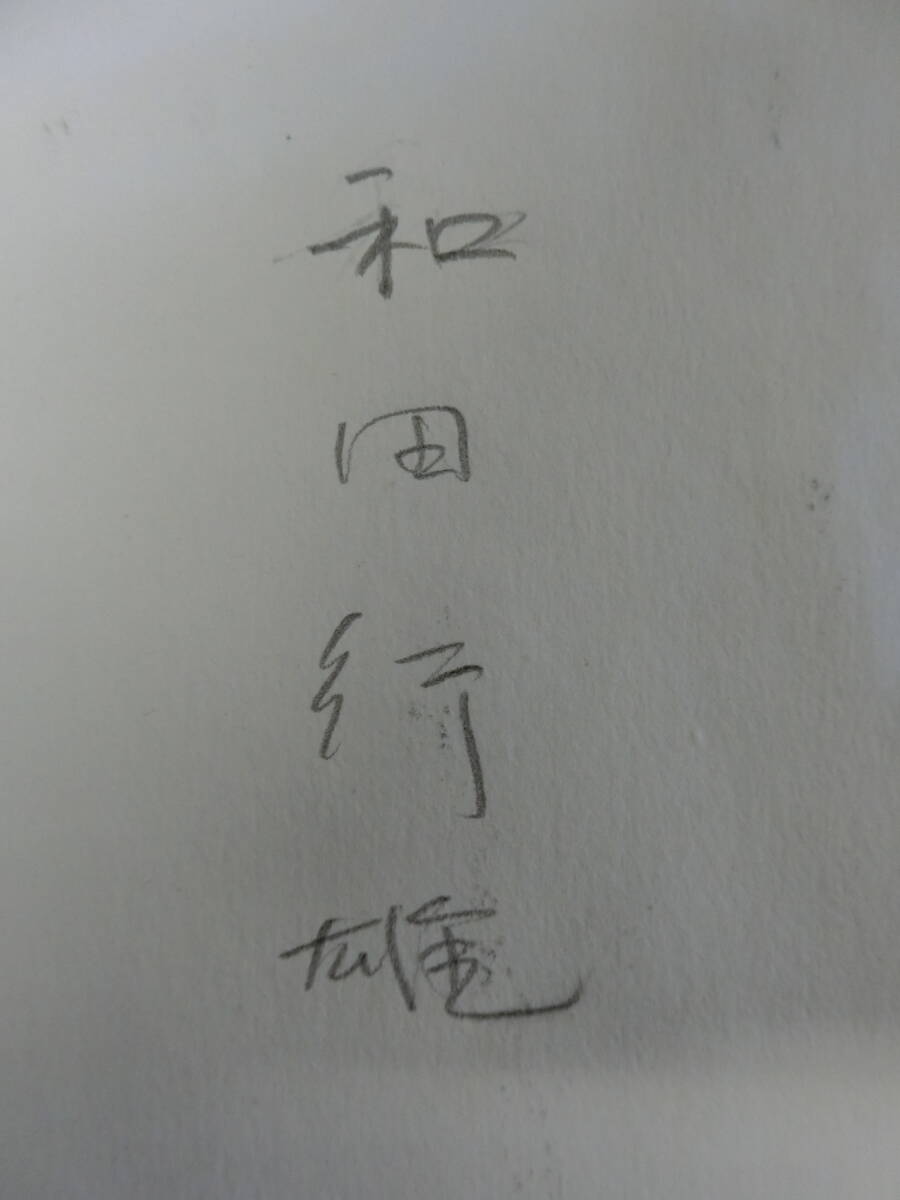 和田行雄